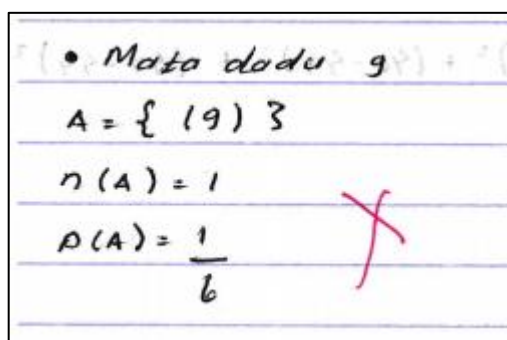 • Mata dadu 9
A = { (9) }
n(A) = 1
P(A) = 1
6